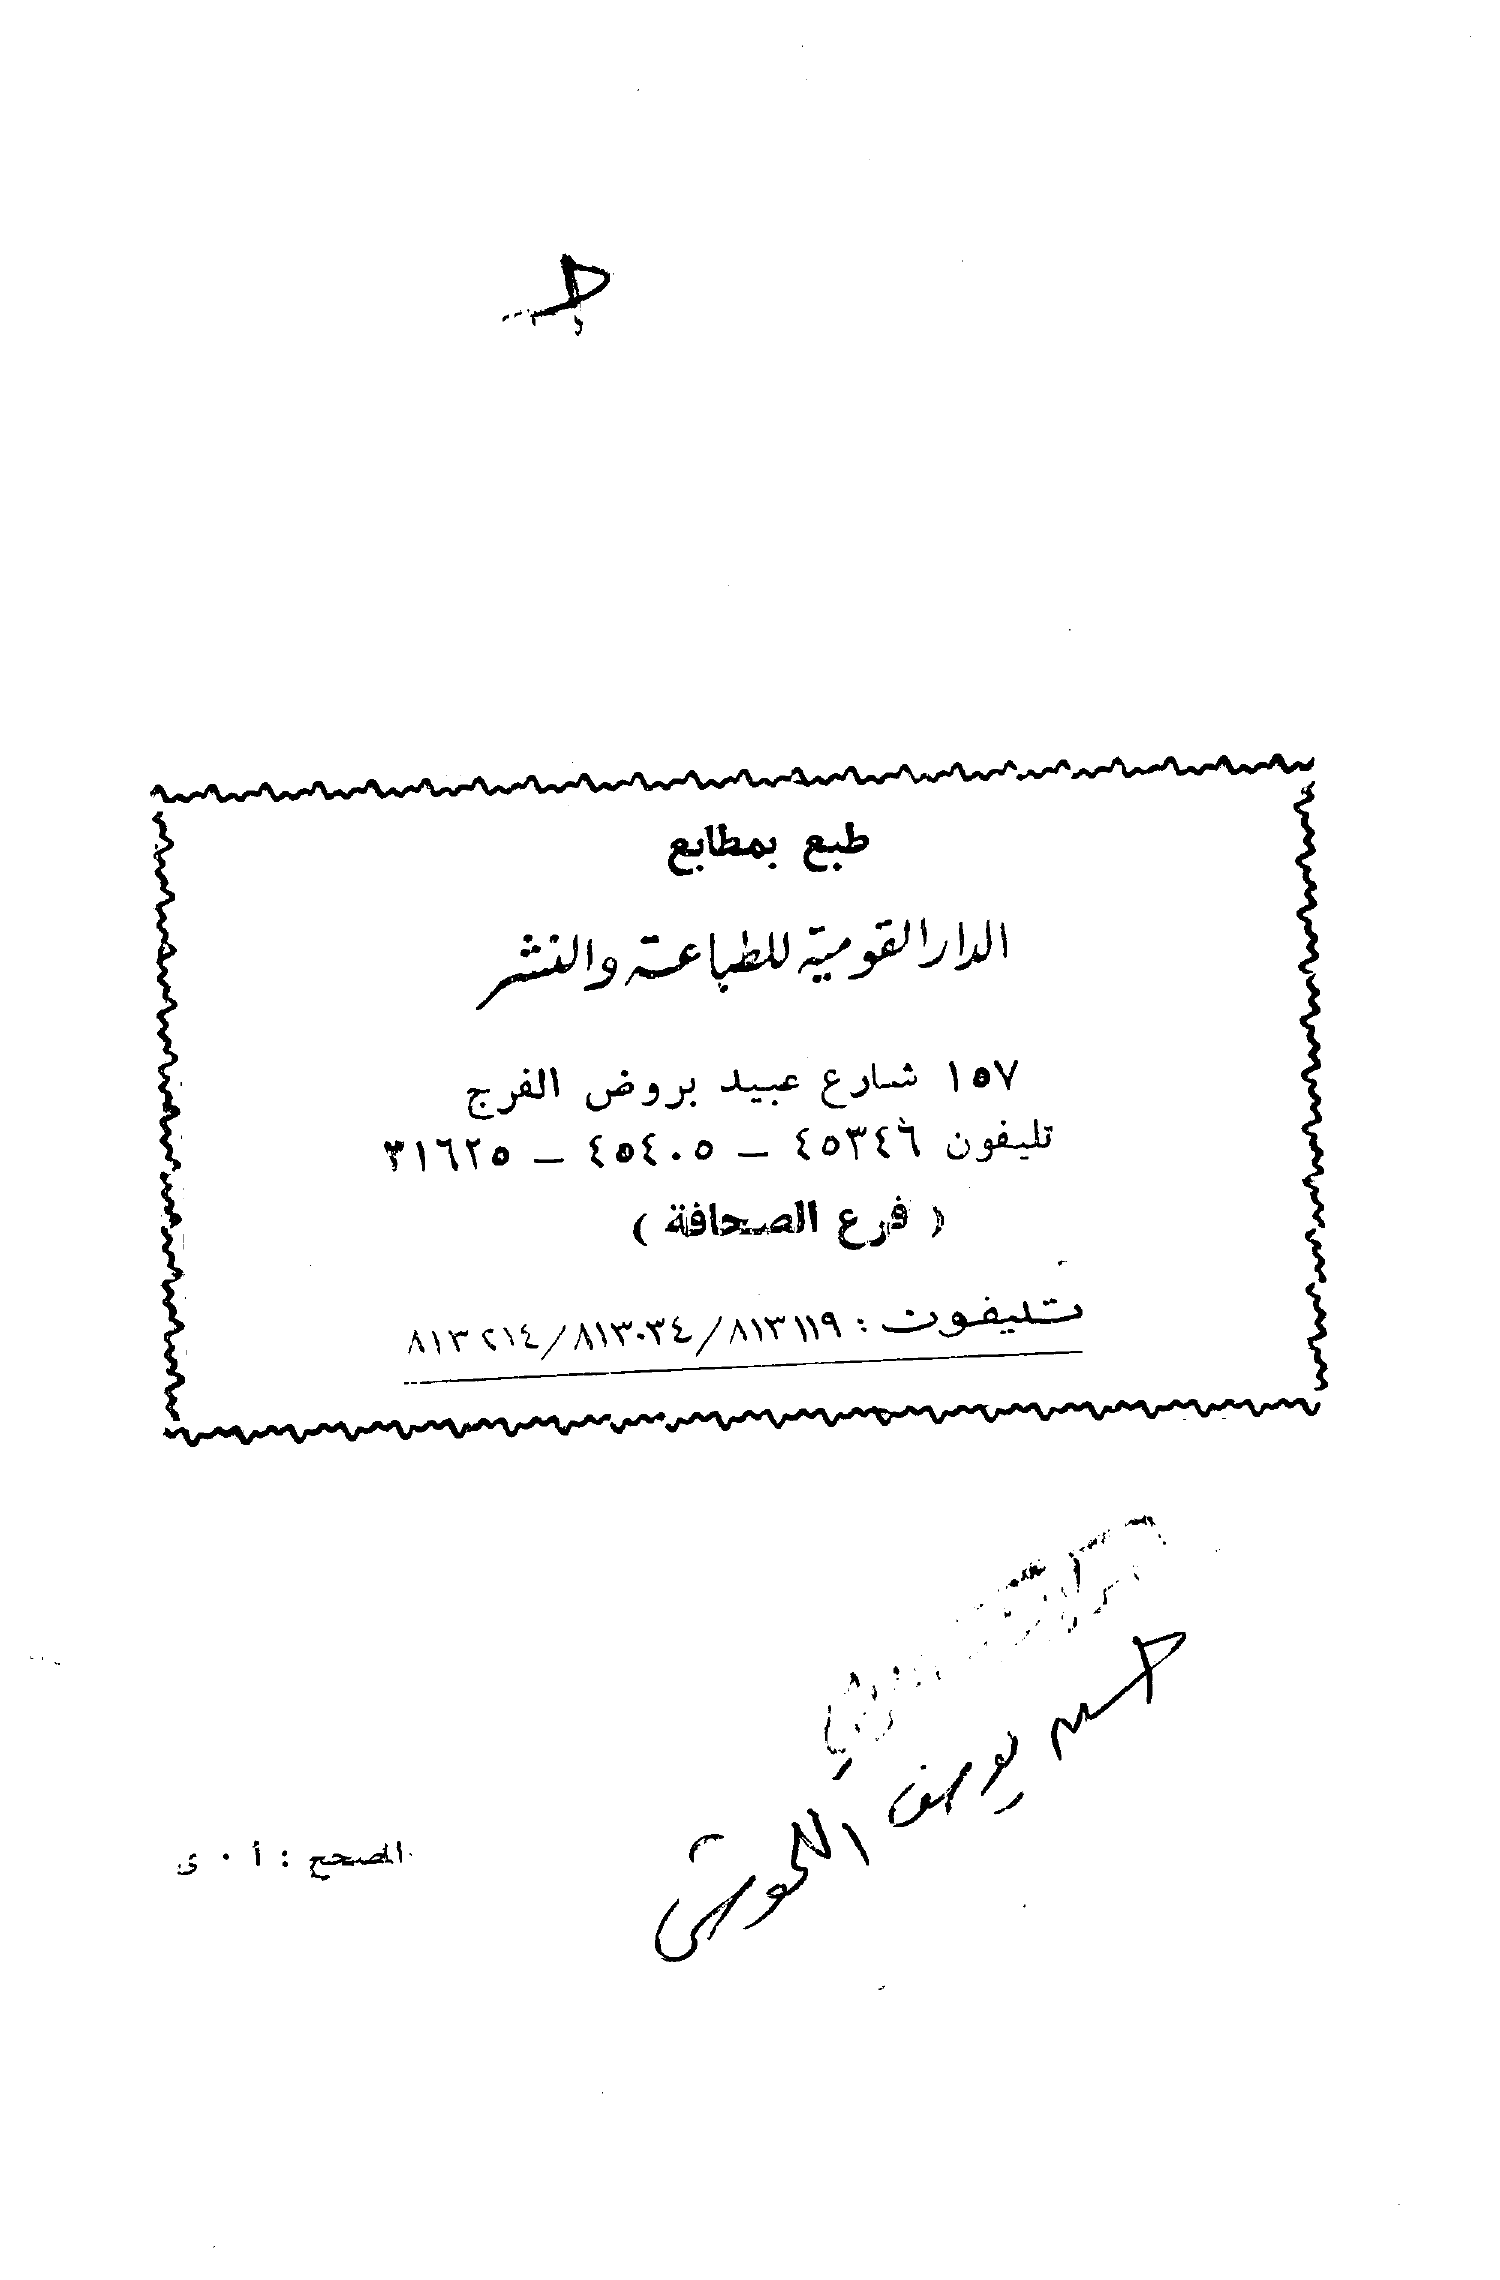 طبع بمطابع
الدار القومية للطباعة والنشر
١٥٧ شارع عبيد بروض الفرج
تليفون ٤٥٣٤٦ – ٤٥٤٠٥ – ٣١٦٢٥
( فرع الصحافة )
تليفون : ٨١٣١١٩/٨١٣٠٣٤/٨١٣٢١٤
يوسف
المصحح : أ ٠ ى